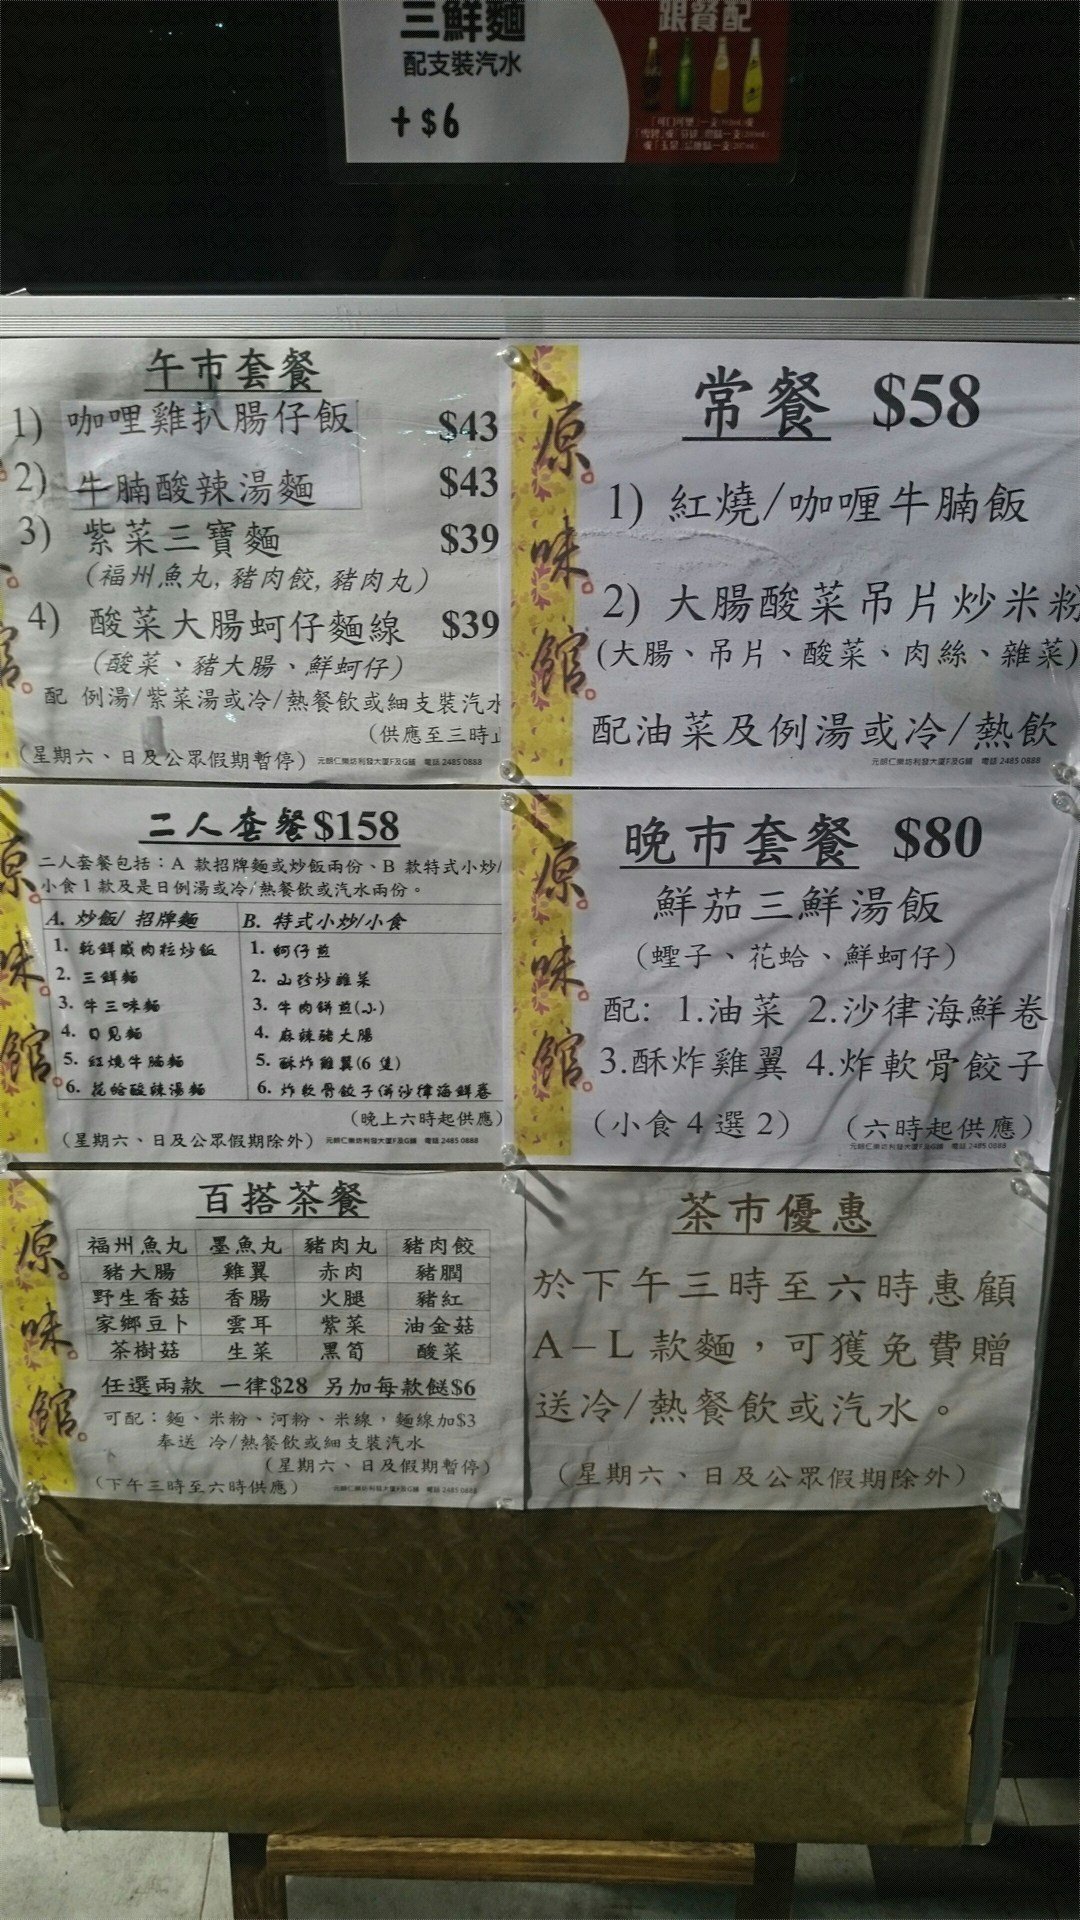 三鮮麵
配支裝汽水
+$6
跟餐配
午市套餐
1) 咖哩雞扒腸仔飯 $43
2) 牛腩酸辣湯麵 $43
3) 紫菜三寶麵 $39
(福州魚丸, 豬肉餃, 豬肉丸)
4) 酸菜大腸蚵仔麵線 $39
(酸菜、豬大腸、鮮蚵仔)
配 例湯/紫菜湯或冷/熱餐飲或細支裝汽水
(供應至三時止
(星期六、日及公眾假期暫停) 元朗仁樂坊利發大厦F及G舖 電話 2485 0888
原味館
常餐 $58
1) 紅燒/咖喱牛腩飯
2) 大腸酸菜吊片炒米粉
(大腸、吊片、酸菜、肉絲、雜菜)
配油菜及例湯或冷/熱飲
元朗仁樂坊利發大厦F及G舖 電話 2485 0888
原味館
二人套餐$158
二人套餐包括：A 款招牌麵或炒飯兩份、B 款特式小炒/
小食 1 款及是日例湯或冷/熱餐飲或汽水兩份。
A. 炒飯/ 招牌麵 B. 特式小炒/小食
1. 乾鮮臘肉粒炒飯 1. 蚵仔煎
2. 三鮮麵 2. 山珍炒雜菜
3. 牛三味麵 3. 牛肉餅煎(小)
4. 日見麵 4. 麻辣豬大腸
5. 紅燒牛腩麵 5. 酥炸雞翼(6 隻)
6. 花蛤酸辣湯麵 6. 炸軟骨餃子併沙律海鮮卷
(晚上六時起供應)
(星期六、日及公眾假期除外) 元朗仁樂坊利發大厦F及G舖 電話 2485 0888
原味館
晚市套餐 $80
鮮茄三鮮湯飯
(蟶子、花蛤、鮮蚵仔)
配: 1.油菜 2.沙律海鮮卷
3.酥炸雞翼 4.炸軟骨餃子
(小食 4 選 2) (六時起供應)
元朗仁樂坊利發大厦F及G舖 電話 2485 0888
原味館
百搭茶餐
福州魚丸 墨魚丸 豬肉丸 豬肉餃
豬大腸 雞翼 赤肉 豬膶
野生香菇 香腸 火腿 豬紅
家鄉豆卜 雲耳 紫菜 油金菇
茶樹菇 生菜 黑筍 酸菜
任選兩款 一律$28 另加每款餸$6
可配：麵、米粉、河粉、米線，麵線加$3
奉送 冷/熱餐飲或細支裝汽水
(星期六、日及假期暫停)
(下午三時至六時供應) 元朗仁樂坊利發大厦F及G舖 電話 2485 0888
茶市優惠
於下午三時至六時惠顧
A－L 款麵，可獲免費贈
送冷/熱餐飲或汽水。
(星期六、日及公眾假期除外)